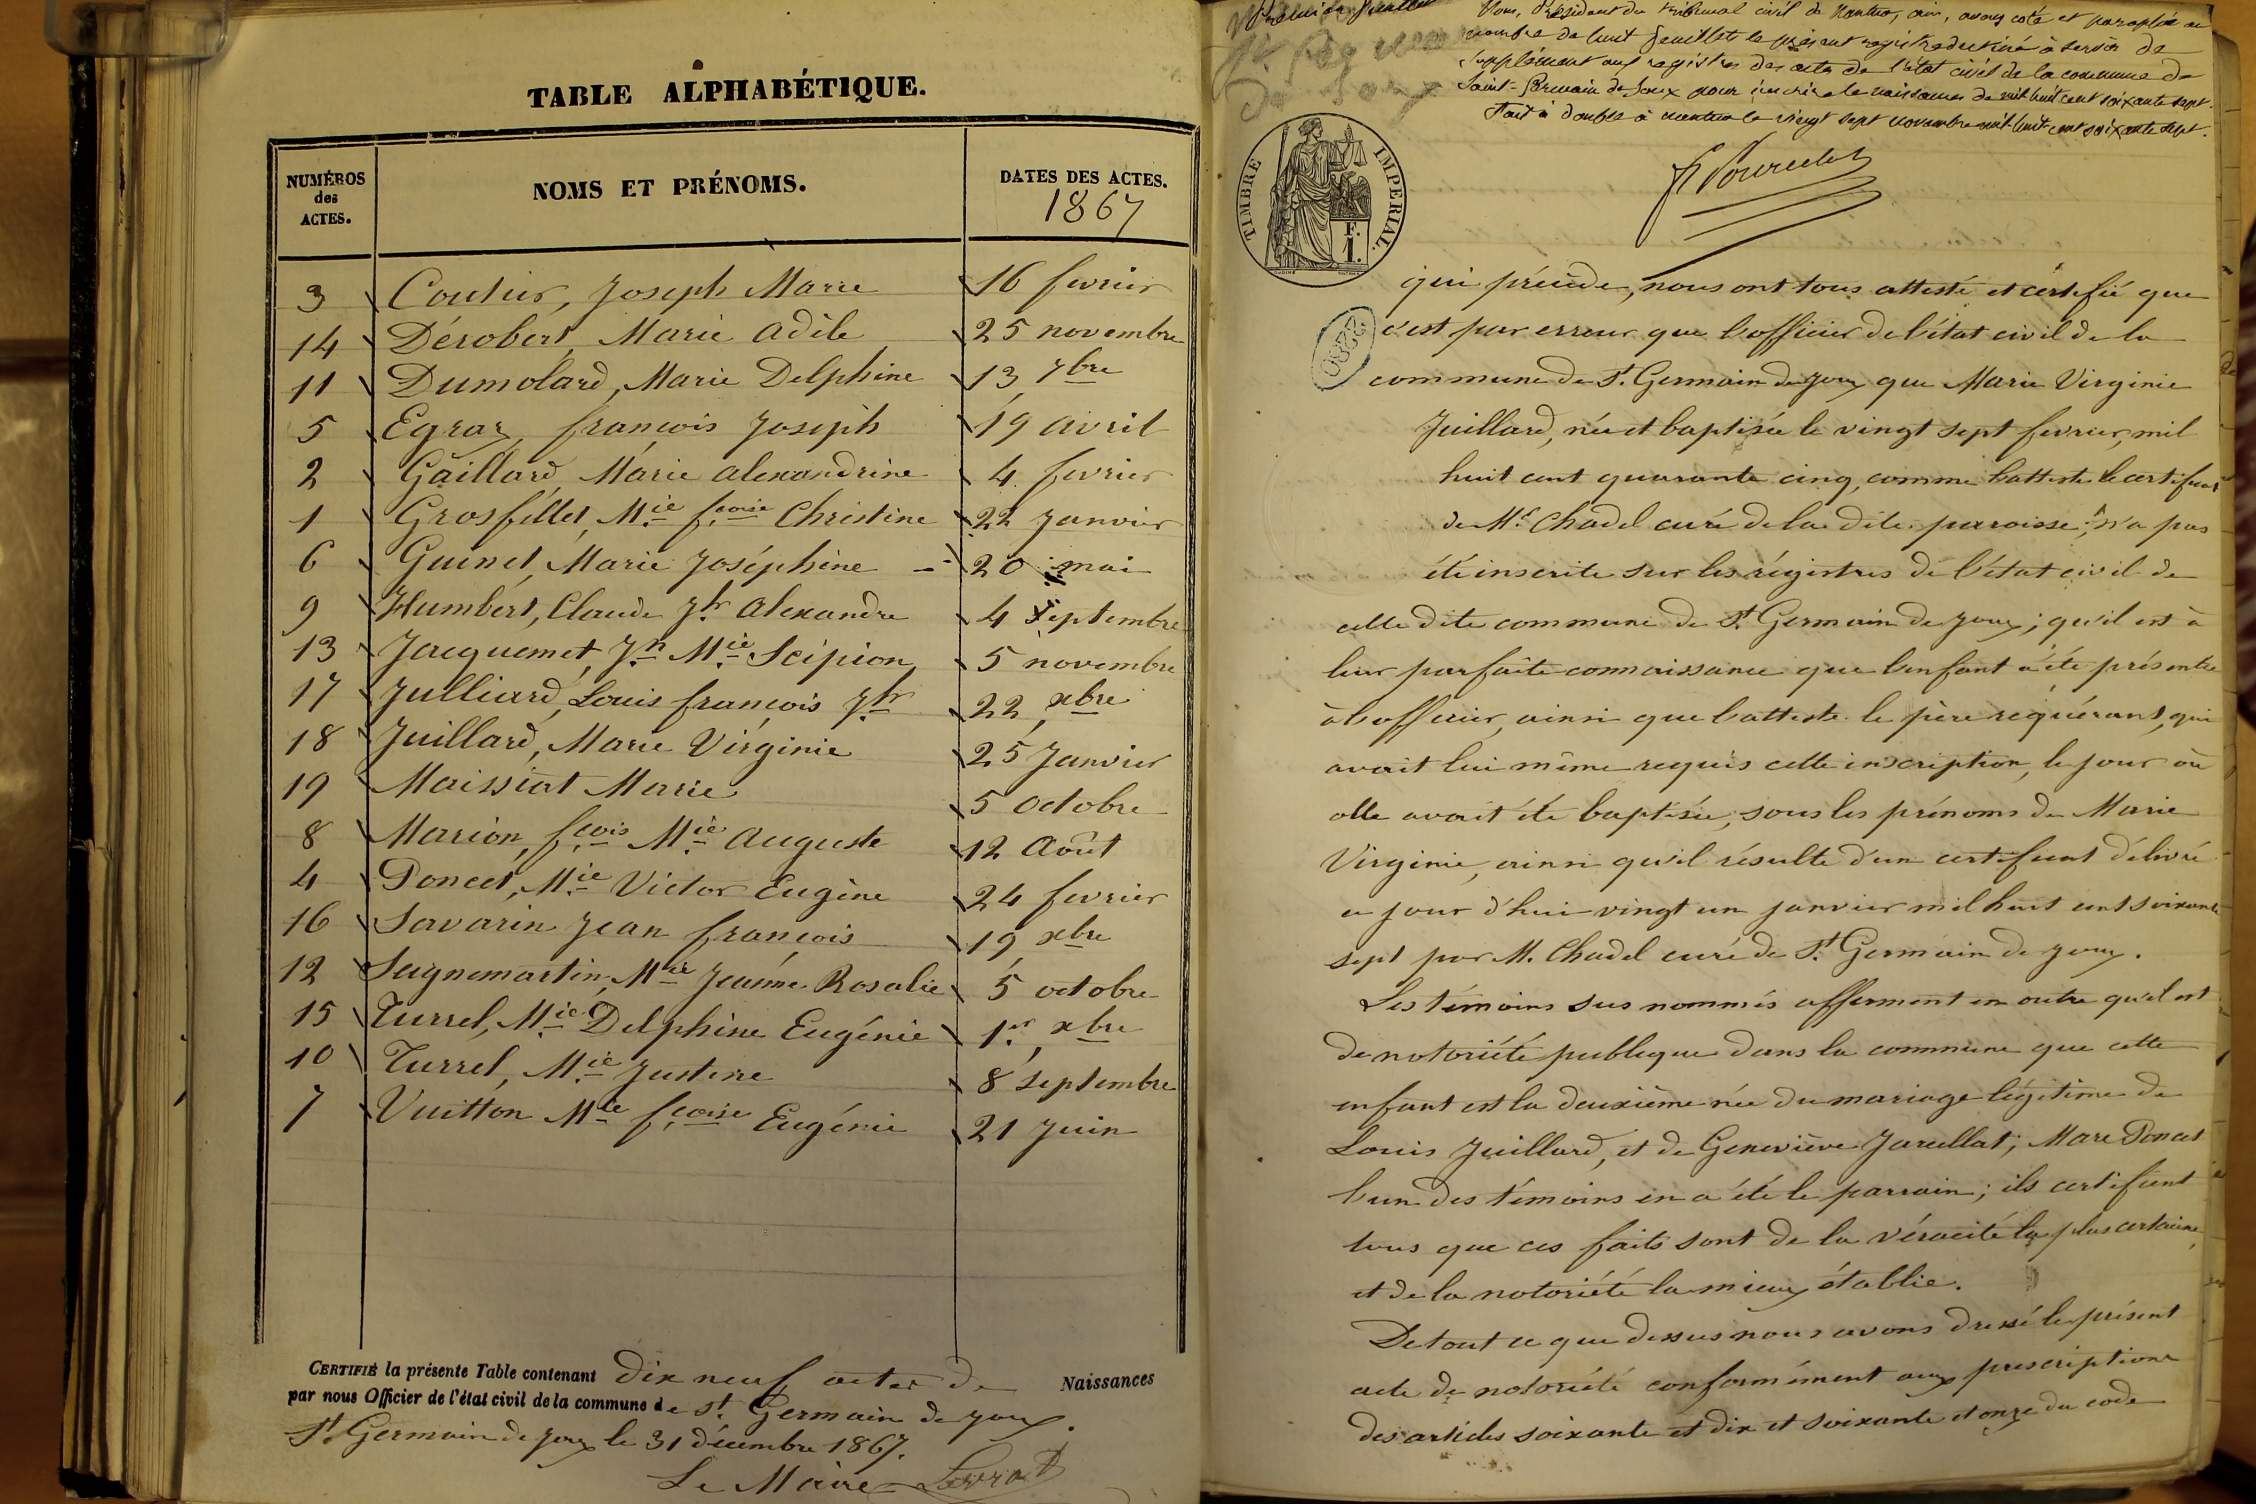 TABLE ALPHABÉTIQUE.
NUMÉROS
des
ACTES.
NOMS ET PRÉNOMS.
DATES DES ACTES.
1867
3 Coutier, Joseph Marie 16 fevrier
14 Dérobert, Marie adèle 25 novembre
11 Dumolard, Marie Delphine 13 7bre
5 Egraz, françois Joseph 19 avril
2 Gaillard, Marie alexandrine 4 fevrier
1 Grosfillet, Mie fçoise Christine 22 janvier
6 Guinet, Marie Joséphine 20 mai
9 Humbert, Claude Jh alexandre 4 septembre
13 Jacquemet, Jh Mie Scipion 5 novembre
17 Julliard, Louis françois Jh 22 xbre
18 Juillard, Marie Virginie 25 Janvier
19 Maissiat Marie 5 octobre
8 Marion, fçois Mie auguste 12 août
4 Poncet, Mie Victor Eugène 24 fevrier
16 Savarin Jean françois 19 xbre
12 Seignemartin, Mie Jeanne Rosalie 5 octobre
15 Turrel, Mie Delphine Eugénie 1er xbre
10 Turrel, Mie Justine 8 septembre
7 Vuitton Mie fçoise Eugénie 21 Juin
CERTIFIÉ la présente Table contenant dix neuf actes de Naissances
par nous Officier de l'état civil de la commune de St. Germain de joux.
St. Germain de joux le 31 décembre 1867.
Le Maire Levrat
Premier feuillet
Nous, Président du tribunal civil de Nantua, ain, avons coté et paraphé au
nombre de huit feuillets le présent registre destiné à servir de
Supplément aux registres des actes de l'état civil de la commune de
Saint-Germain de Joux pour inscrire les naissances de mil huit cent soixante sept.
Fait à double à nantua le vingt sept novembre mil huit cent soixante sept.
TIMBRE IMPERIAL.
F.
1.
2280
qui précède, nous ont tous attesté et certifié que
c'est par erreur que l'officier de l'état civil de la
commune de St. Germain de joux que Marie Virginie
Juillard, née et baptisée le vingt sept fevrier, mil
huit cent quarante cinq, comme l'atteste le certificat
de Mr Chadel curé de la dite paroisse, n'a pas
été inscrite sur les régistres de l'état civil de
cette dite commune de St. Germain de joux; qu'il est à
leur parfaite connaissance que l'enfant a été présentée
à l'officier, ainsi que l'atteste le père requérant, qui
avait lui même requis cette inscription, le jour où
elle avait été baptisée, sous les prénoms de Marie
Virginie, ainsi qu'il résulte d'un certificat délivré
ce jour d'hui vingt un janvier mil huit cent soixante
sept par M. Chadel curé de St. Germain de joux.
Les témoins sus nommés afferment en outre qu'il est
de notoriété publique dans la commune que cette
enfant est la deuxième née du mariage légitime de
Louis Juillard, et de Geneviève Jarcellat; Marc Poncet
l'un des témoins en a été le parrain; ils certifient
tous que ces faits sont de la véracité la plus certaine,
et de la notoriété la mieux établie.
De tout ce que dessus nous avons dressé le présent
acte de notoriété conformément aux prescriptions
des articles soixante et dix et soixante et onze du code